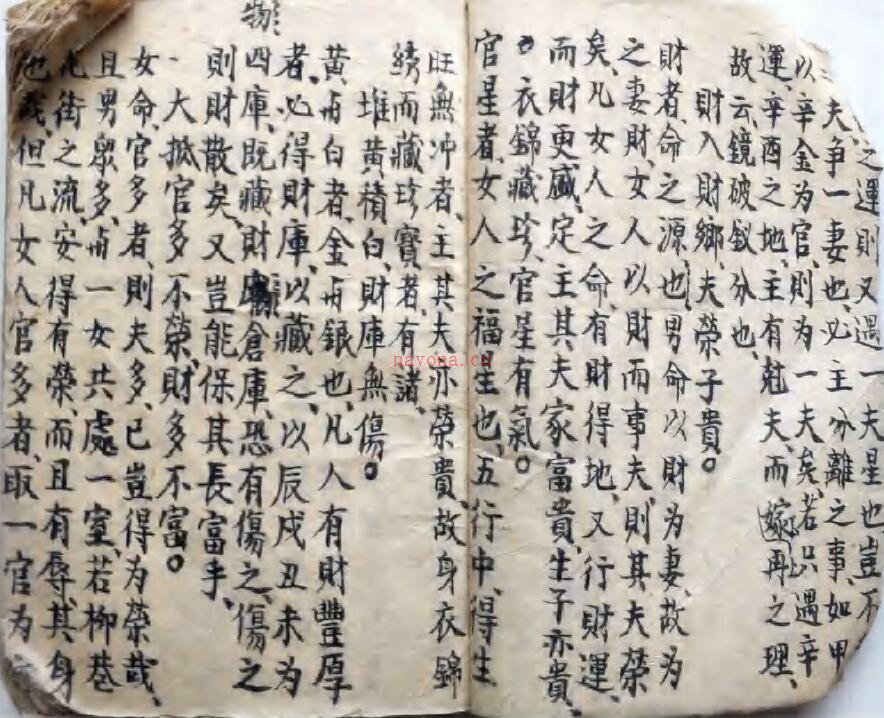 之運則又遇一夫星也豈不
二夫争一妻也必主分離之事、如甲
以辛金为官則为一夫矣、若只遇辛
運、辛酉之地主有尅夫而嫁再之理、
故云鏡破釵分也、
財入財鄉、夫榮子貴。
財者、命之源也、男命以財为妻、故为
之妻財、女人以財而事夫、則其夫榮
矣、凡女人之命、有財得地、又行財運、
而財更盛、定主其夫家富貴、生子亦貴、
衣錦藏珍、官星有氣。
官星者、女人之福生也、五行中、得生
旺無冲者、主其夫亦榮貴、故身衣錦
綉而藏珍寶者有諸、
堆黃積白、財庫無傷。
黃、白者、金銀也、凡人有財豐厚
者、必得財庫、以藏之、以辰戌丑未为
物
四庫、既藏財倉庫、恐有傷之、傷之
則財散矣、又豈能保其長富乎、
一大抵官多不榮、財多不富。
女命、官多者、則夫多、已豈得为榮哉、
且男眾多、一女共處一室、若柳巷
花街之流、安得有榮、而且有辱、其身
也哉、但凡女人官多者、取一官为
nayona.cn